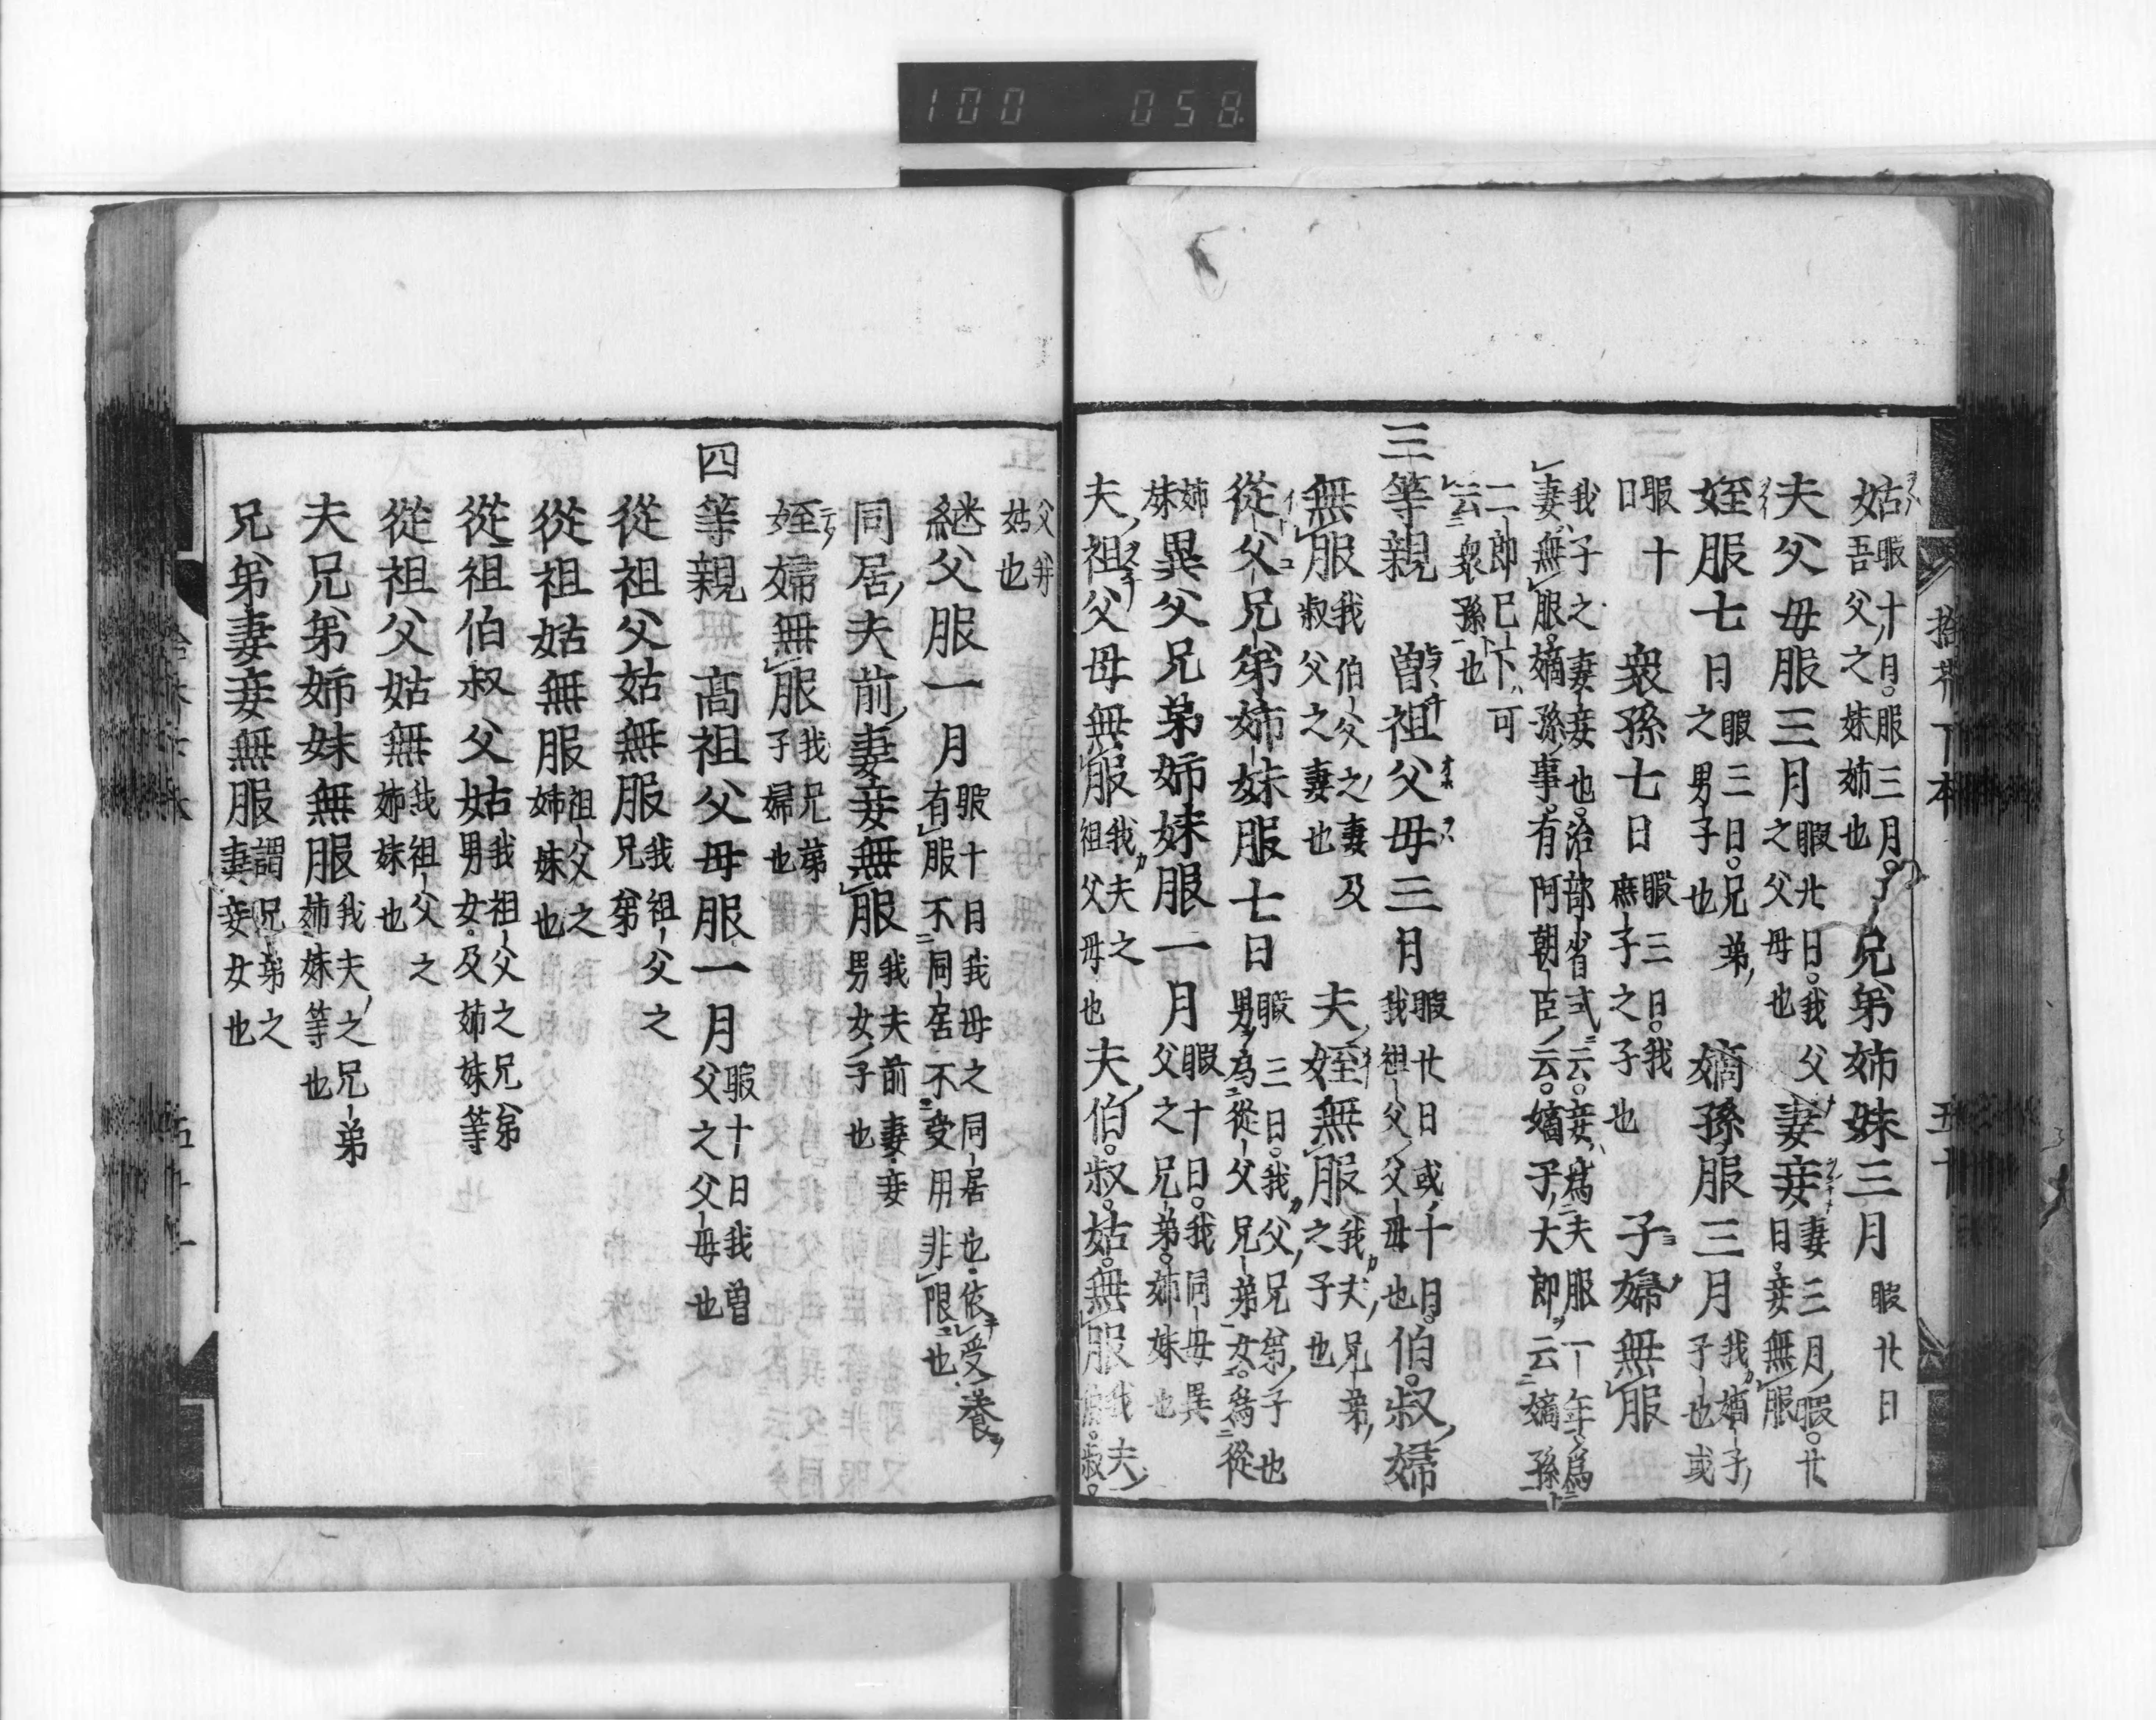 100 058
姑 暇十日服三月 吾父之妹姉也 兄弟姉妹三月 暇廿日
夫父母服三月 暇廿日我 之父母也 父妻妾 妻三月暇廿 日妾無服
姪服七日 暇三日兄弟 之男子也 嫡孫服三月 我嫡子 子也或
暇十 日 衆孫七日 暇三日我 庶子之子也 子婦無服
我子之妻妾也治部省式云妾為夫服一年為
妻無服嫡孫事有阿朝臣云嫡子大郎云嫡孫
二郎已下可
云衆孫也
三等親 曽祖父母三月 暇廿日或十日 我祖父父母也 伯叔婦
無服 我伯父之妻及 叔父之妻也 夫姪無服 我夫兄弟 之子也
從父兄弟姉妹服七日 暇三日我父兄弟子也 男為從父兄弟女為從
姉 妹 異父兄弟姉妹服一月 暇十日我同母異 父之兄弟姉妹也
夫祖父母無服 我夫之 祖父母也 夫伯叔姑無服 我夫 伯叔
父并
姑也
継父服一月 暇十日我母之同居也依受養 有服不同居不受用非限也
同居夫前妻妾無服 我夫前妻妾 男女子也
姪婦無服 我兄弟 子婦也
四等親 高祖父母服一月 暇十日我曽 父之父母也
從祖父姑無服 我祖父之 兄弟
從祖姑無服 祖父之 姉妹也
從祖伯叔父姑 我祖父之兄弟 男女及姉妹等
從祖父姑無 我祖父之 姉妹也
夫兄弟姉妹無服 我夫之兄弟 姉妹等也
兄弟妻妾無服 謂兄弟之 妻妾女也